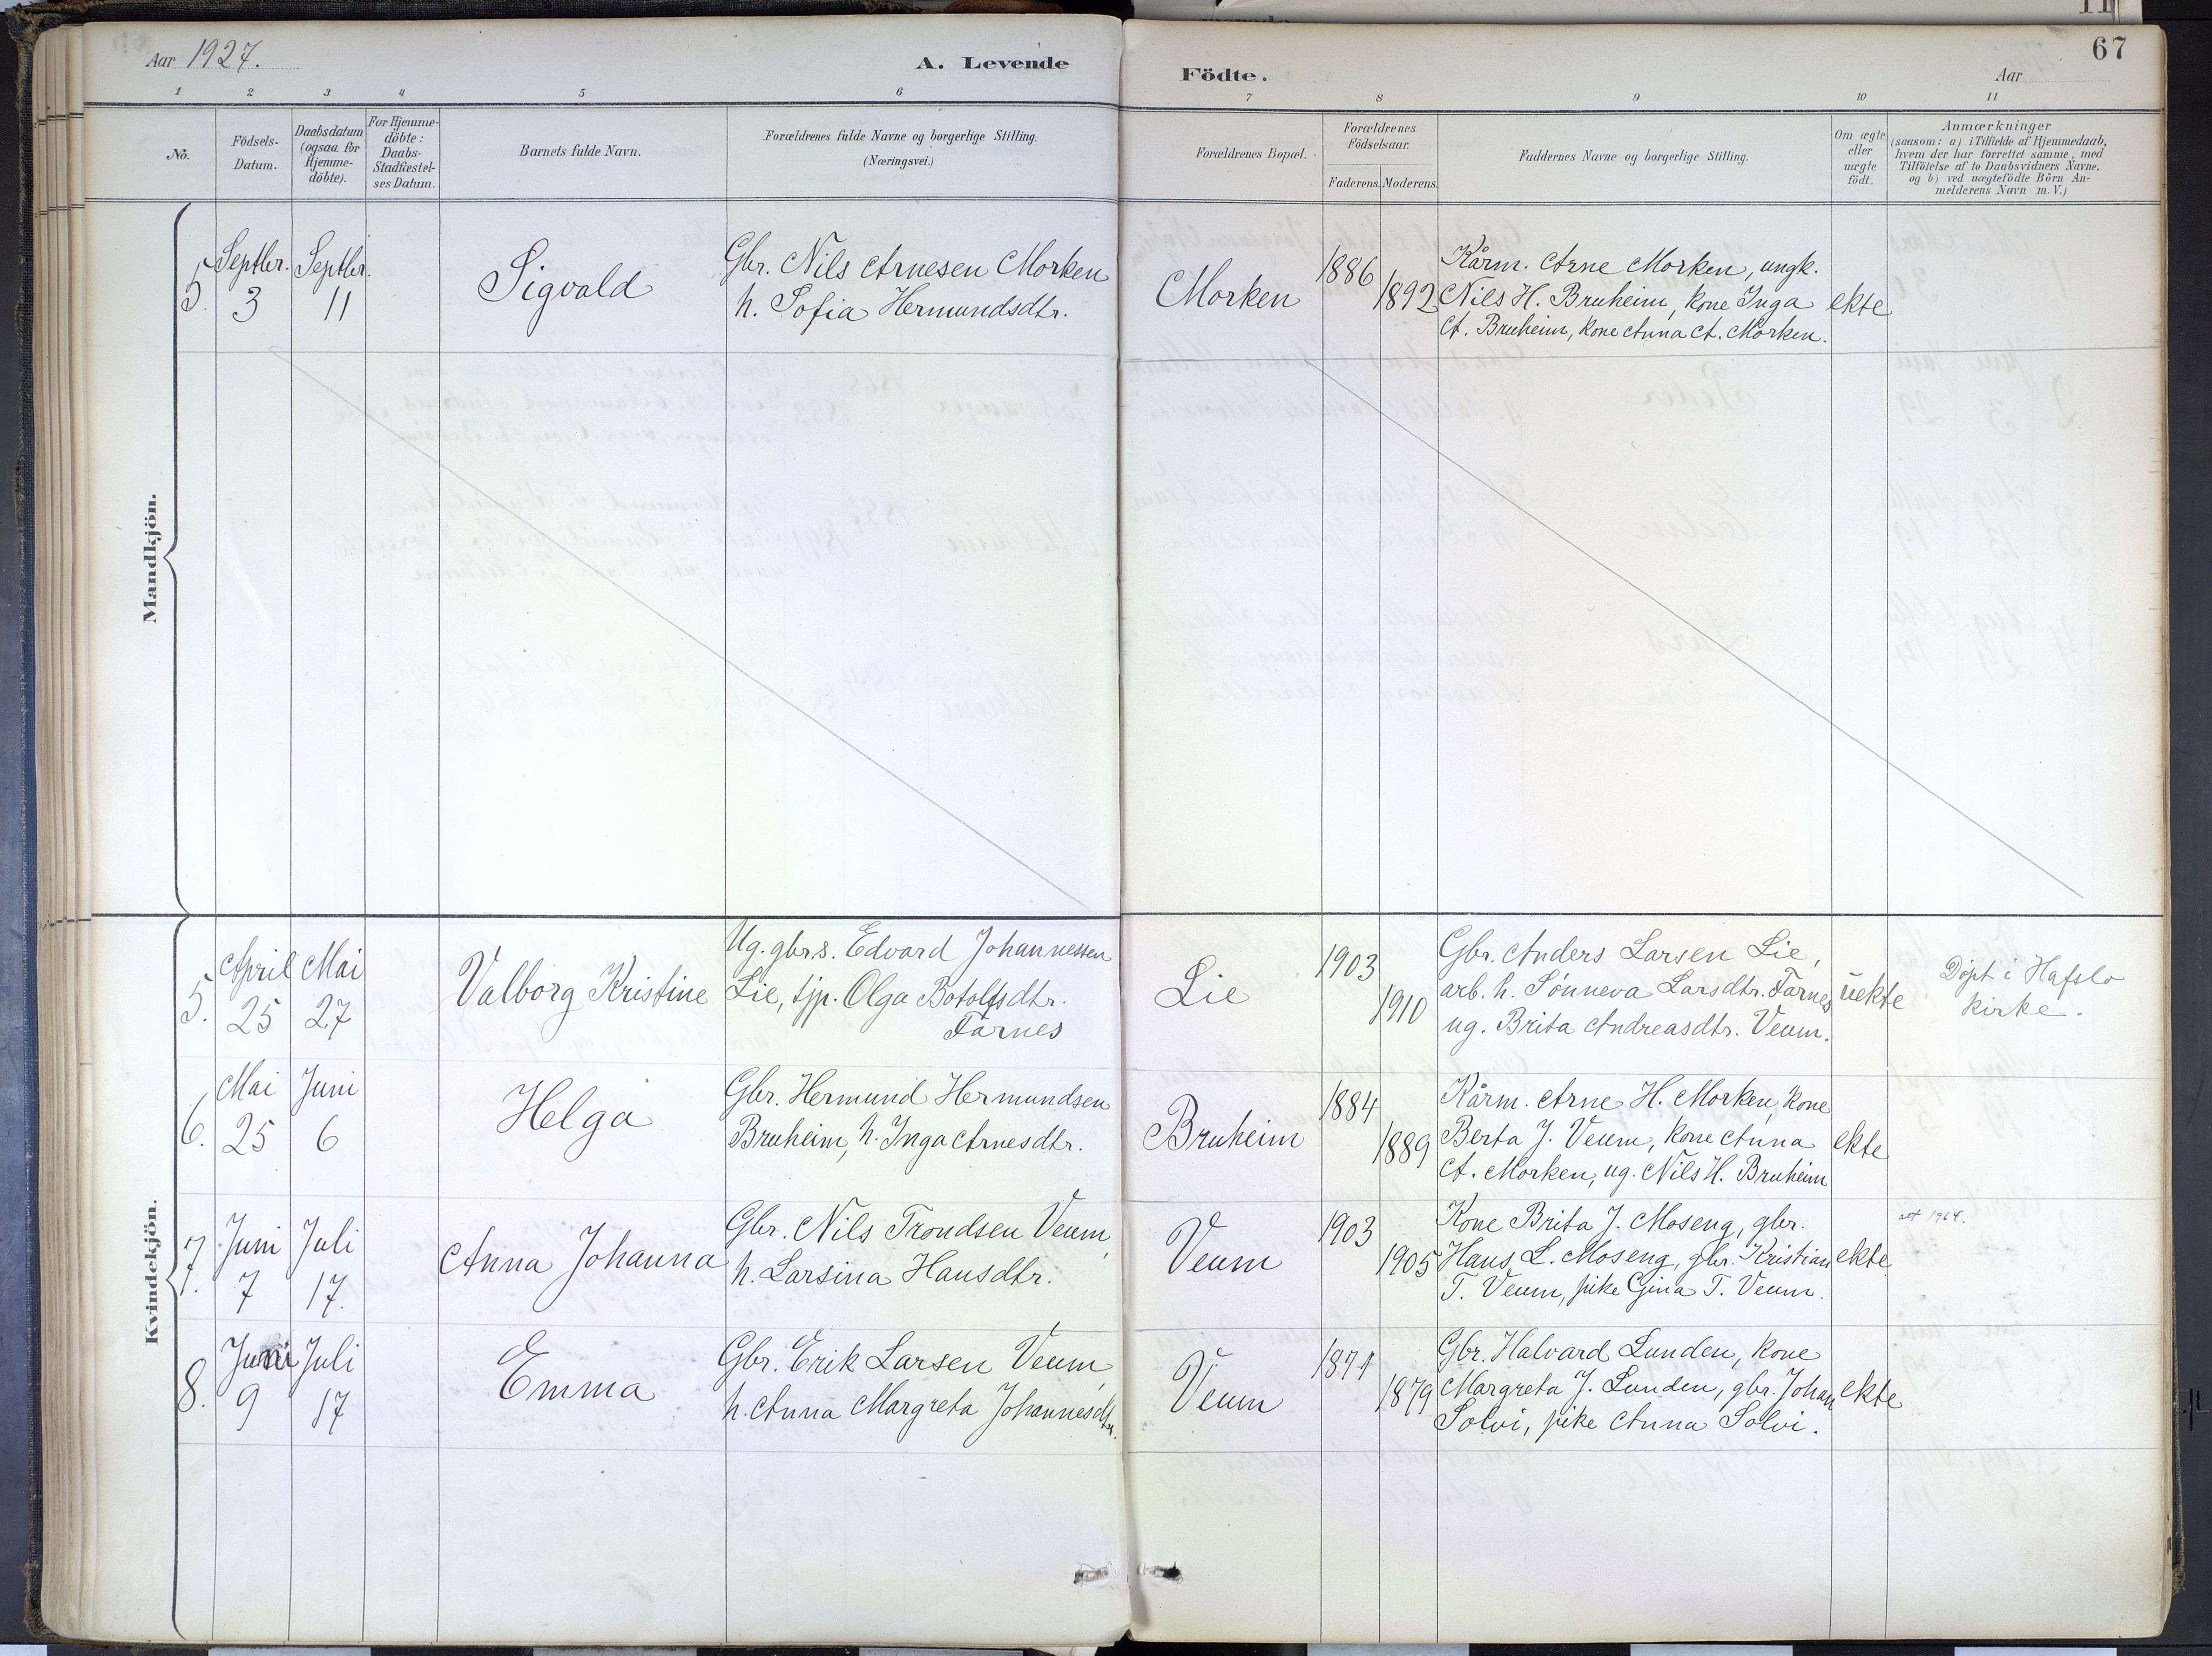 67
Aar 1927.
A. Levende
Födte.
Aar
1 2 3 4 5 6 7 8 9 10 11
No.
Födsels-
Datum.
Daabsdatum
(ogsaa for
Hjemme-
döbte).
For Hjemme-
döbte:
Daabs-
Stadfæstel-
ses Datum.
Barnets fulde Navn.
Forældrenes fulde Navne og borgerlige Stilling.
(Næringsvei.)
Forældrenes Bopæl.
Forældrenes
Födselsaar.
Faderens. Moderens.
Faddernes Navne og borgerlige Stilling.
Om ægte
eller
uægte
födt.
Anmærkninger
(saasom: a) i Tilfælde af Hjemmedaab,
hvem der har forrettet samme, med
Tilföielse af to Daabsvidners Navne.
og b) ved uægtefödte Börn An-
melderens Navn m. V.)
Mandkjön.
5.
Septbr.
3
Septbr.
11
Sigvald
Gbr. Nils Arnesen Morken
h. Sofia Hermundsdtr.
Morken
1886
1892
Kårm. Arne Morken, ungk.
Nils H. Bruheim, kone Inga
A. Bruheim, kone Anna A. Morken.
ekte
Kvindekjön.
5.
April
25
Mai
27
Valborg Kristine
Ug. gbrs. Edvard Johannessen
Lie, tjp. Olga Botolfsdtr.
Farnes
Lie
1903
1910
Gbr. Anders Larsen Lie,
arb. h. Sønneva Larsdtr. Farnes
ug. Brita Andreasdtr. Veum.
uekte
Døpt i Hafslo
kirke.
6.
Mai
25
Juni
6
Helga
Gbr. Hermund Hermundsen
Bruheim, h. Inga Arnesdtr.
Bruheim
1884
1889
Kårm. Arne H. Morken, kone
Berta J. Veum, kone Anna
A. Morken, ug. Nils H. Bruheim
ekte
7.
Juni
7
Juli
17.
Anna Johanna
Gbr. Nils Trondsen Veum,
h. Larsina Hansdtr.
Veum
1903
1905
Kone Brita J. Moseng, gbr.
Hans L. Moseng, gbr. Kristian
T. Veum, pike Gina T. Veum.
ekte
1964.
8.
Juni
9
Juli
17
Emma
Gbr. Erik Larsen Veum,
h. Anna Margreta Johannesdtr.
Veum
1871
1879
Gbr. Halvard Lunden, kone
Margreta J. Lunden, gbr. Johan
Solvi, pike Anna Solvi.
ekte